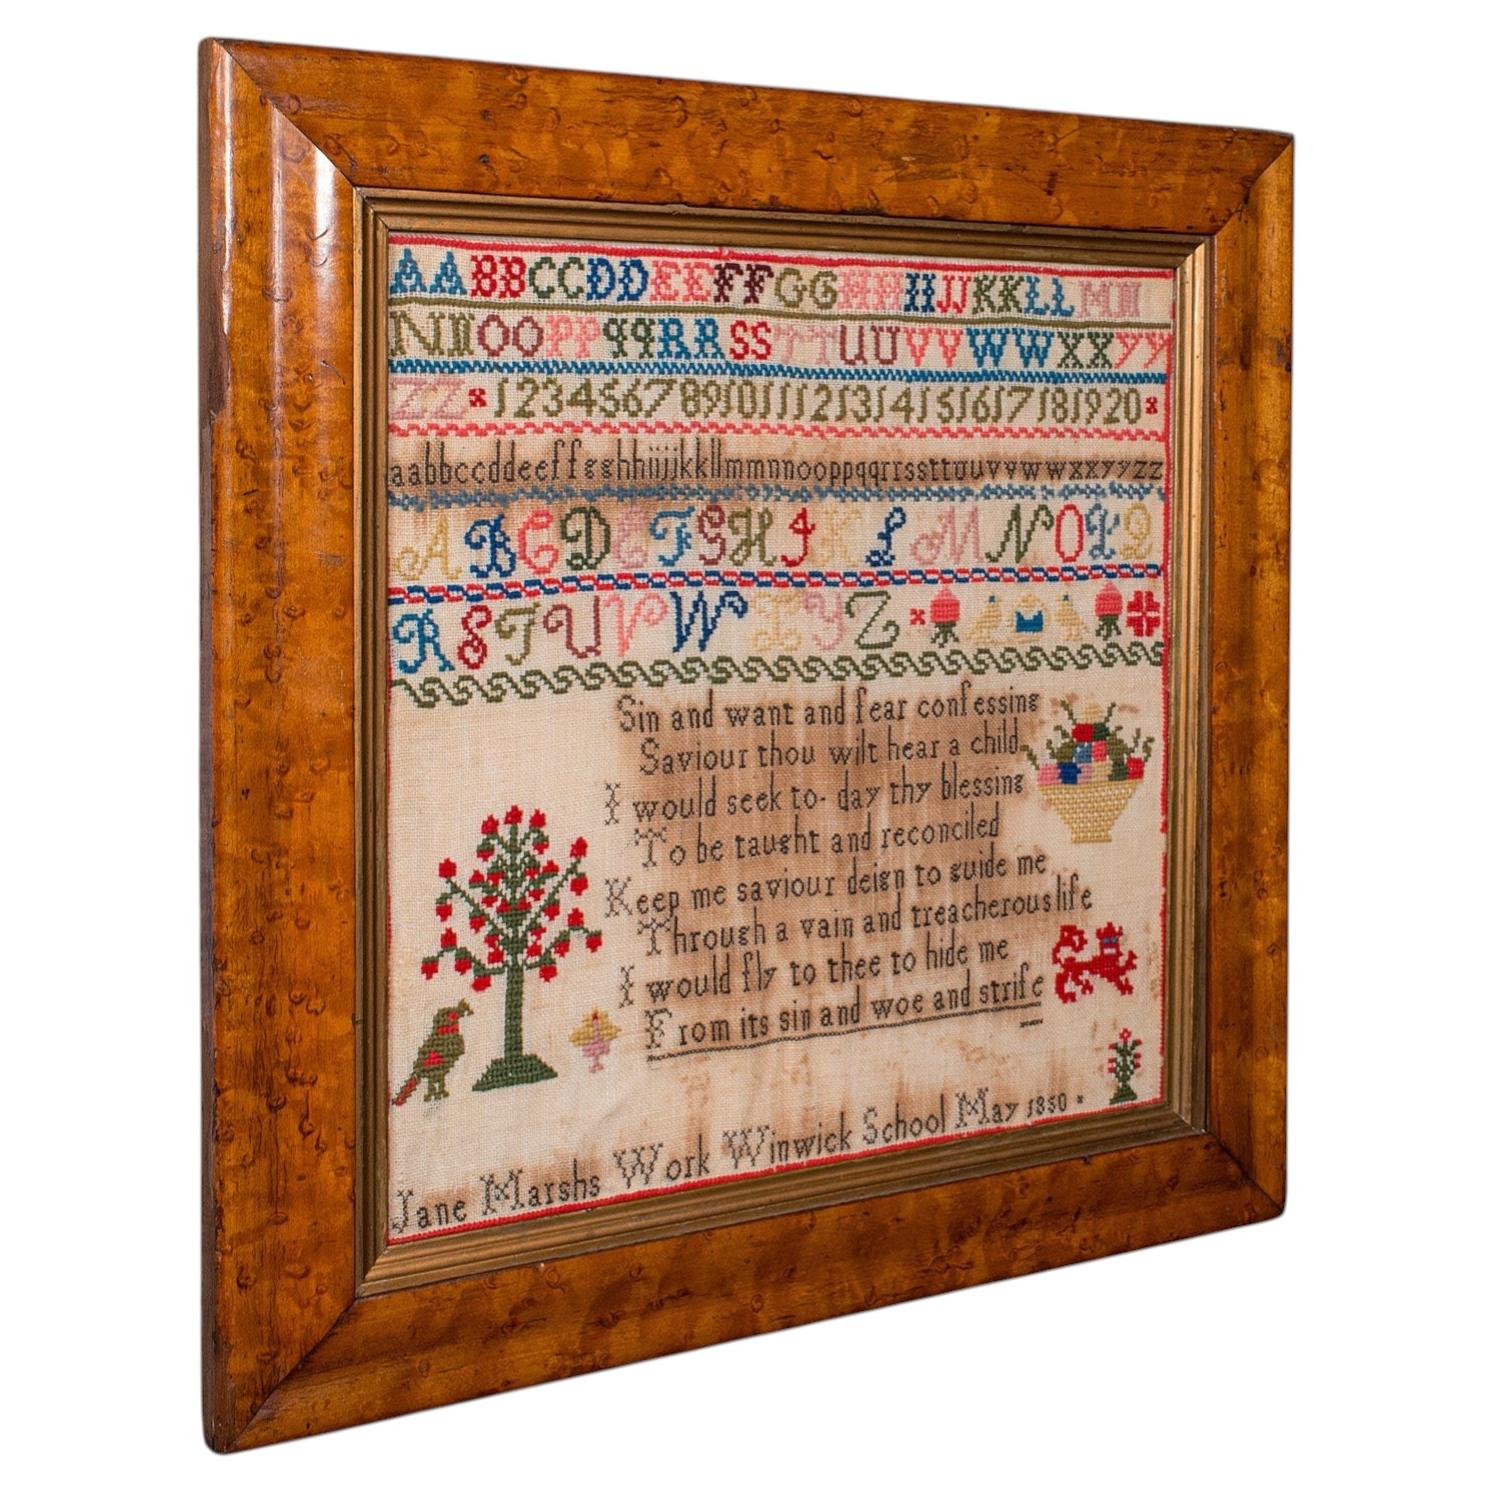 AABBCCDDEEFFGGHHIIJJKKLLMM
NNOOPPqqRRSSTTUUVVWWXXYY
ZZ 1234567891011121314151617181920
aabbccddeeffgghhiijjkkllmmnnooppqqrrssttuuvvwwxxyyzz
ABCDEFGHIKLMNOPQ
RSTUVWXYZ
Sin and want and fear confessing
Saviour thou wilt hear a child
I would seek to-day thy blessing
To be taught and reconciled
Keep me saviour deign to guide me
Through a vain and treacherous life
I would fly to thee to hide me
From its sin and woe and strife
Jane Marshs Work Winwick School May 1850